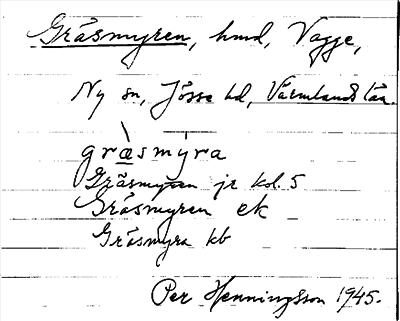 Gräsmyren, hmd, Vagge,
Ny sn, Jösse hd, Värmlands län.
gräsmyra
Gräsmyran jr kol. 5
Gräsmyren ek
Gräsmyra kb
Per Henningsson 1945.